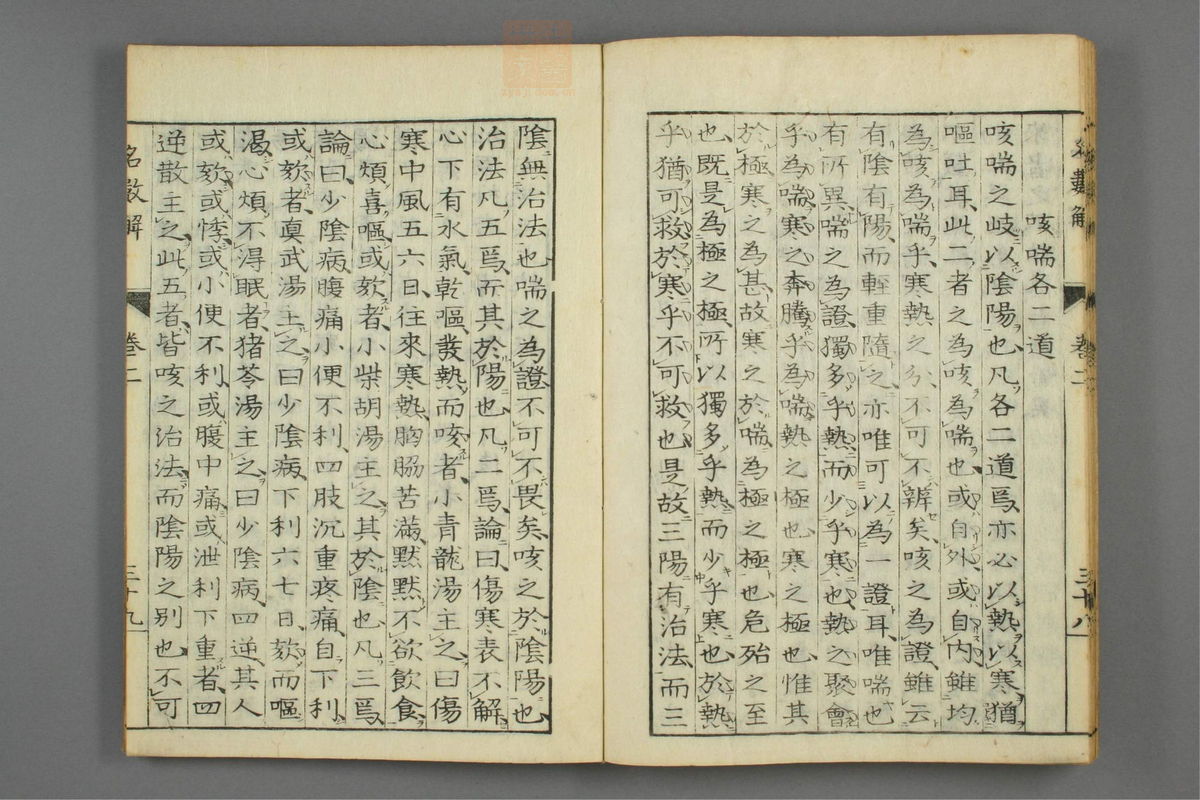 咳喘各二道
咳喘之岐以陰陽也凡各二道焉亦必以熱以寒猶
嘔吐耳此二者之為咳為喘也或自外或自内雖均
為咳為喘乎寒熱之分不可不辨矣咳之為證雖云
有陰有陽而輕重隨之亦唯可以為一證耳唯喘也
有所異喘之為證獨多乎熱而少乎寒也熱之聚會
乎為喘寒之奔騰乎為喘熱之極也寒之極也惟其
於極寒之為甚故寒之於喘為極之極也危殆之至
也既是為極之極所以獨多乎熱而少乎寒也於熱
乎猶可救於寒乎不可救也是故三陽有治法而三
卷二
三十八
陰無治法也喘之為證不可不畏矣咳之於陰陽也
治法凡五焉而其於陽也凡二焉論曰傷寒表不解
心下有水氣乾嘔發熱而咳者小青龍湯主之曰傷
寒中風五六日往來寒熱胸脇苦滿默默不欲飲食
心煩喜嘔或欬者小柴胡湯主之其於陰也凡三焉
論曰少陰病腹痛小便不利四肢沉重疼痛自下利
或欬者眞武湯主之曰少陰病下利六七日欬而嘔
渴心煩不得眠者猪苓湯主之曰少陰病四逆其人
或欬或悸或小便不利或腹中痛或泄利下重者四
逆散主之此五者皆咳之治法而陰陽之別也不可
名數解
卷二
三十九